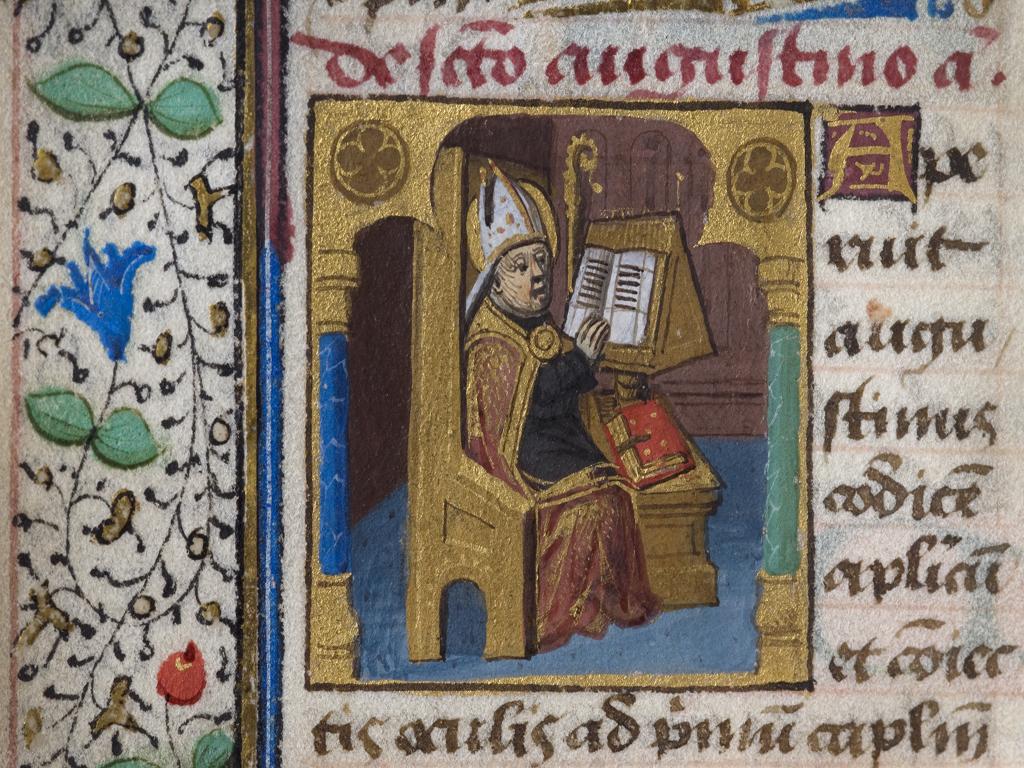 de scto augustino a.
Ape
ruit
augu
stinus
codicē
aplicū
et cōiec
tis oculis ad pmū caplm